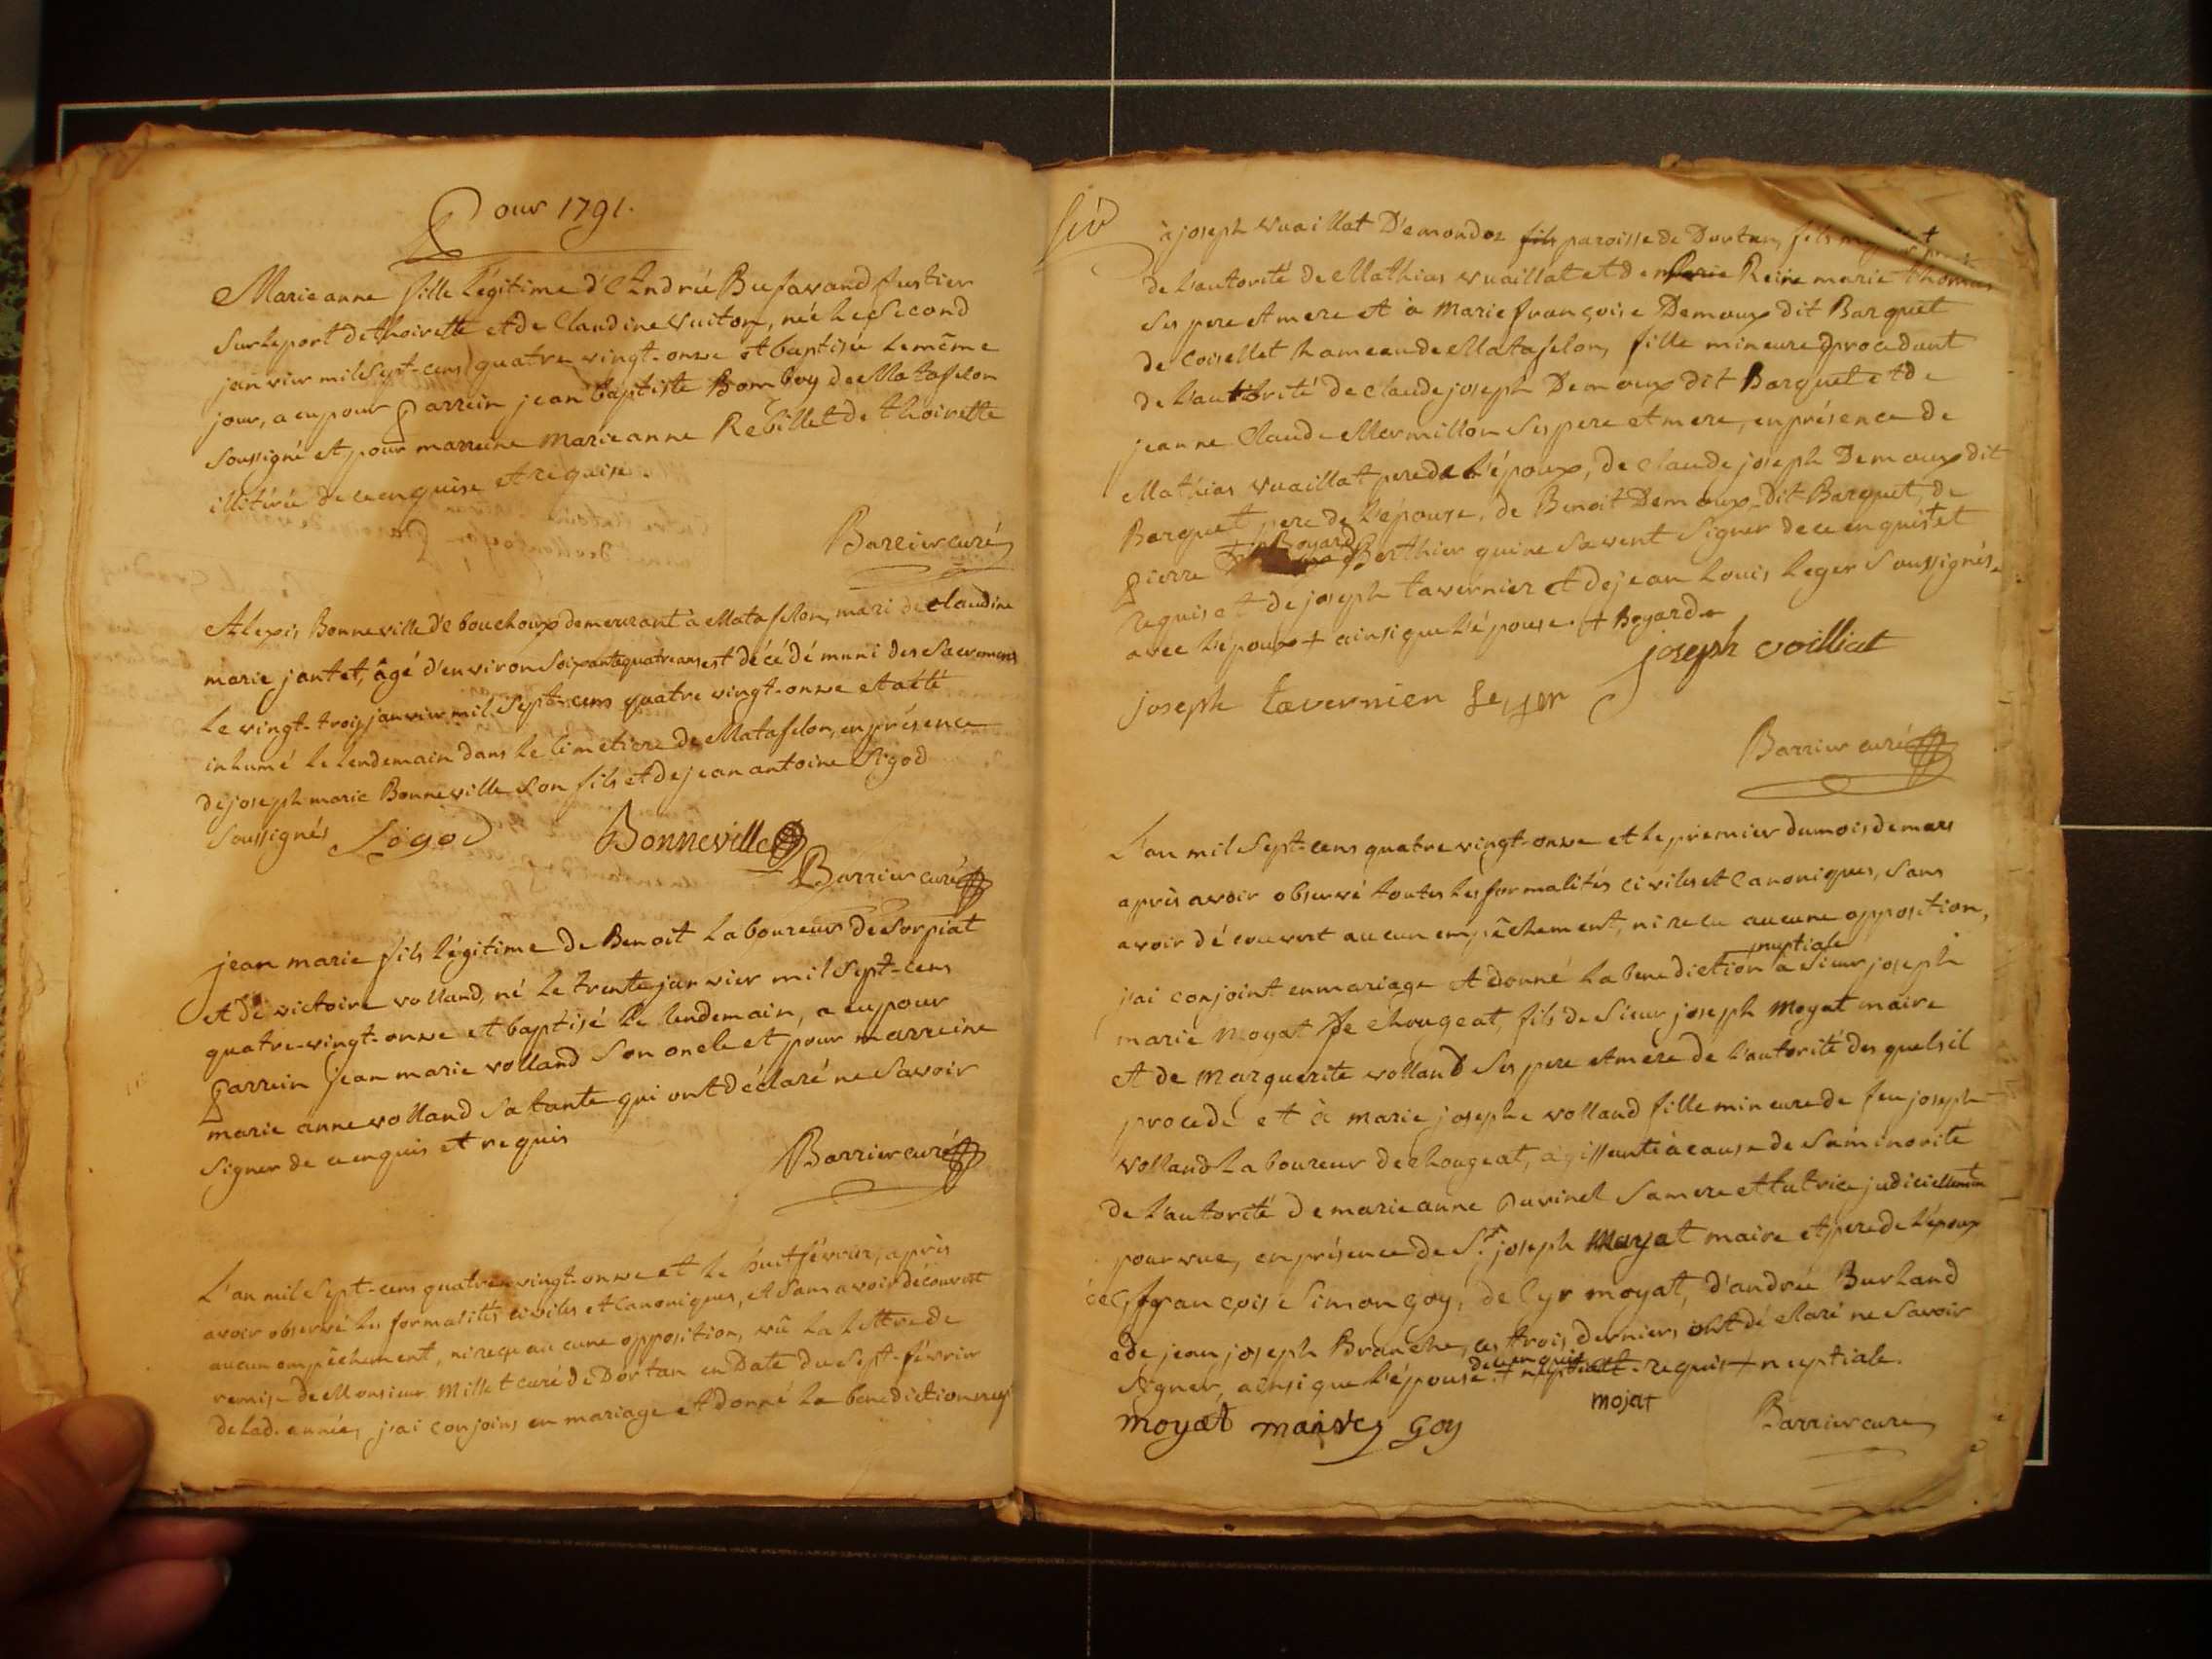 Pour 1791.
Marie anne fille légitime d'André Bufavand fustier
sur le port de thoirette et de Claudine Vuiton, née le second
janvier mil sept-cens quatre vingt-onze et baptisée le même
jour, a eu pour parrein jean baptiste Bomboy de Matafelon
soussigné et pour marreine marie anne Rebillet de thoirette
illitérée de ce enquise et requise.
Barrier curé
Alexis Bonneville d'e bouchoux demeurant à Matafelon, mari de claudine
marie jantet, âgé d'environ soixante quatre ans est décédé muni des sacremens
le vingt-trois janvier mil sept-cens quatre vingt-onze et a été
inhumé le lendemain dans le cimetiere de Matafelon, en présence
de joseph marie Bonneville son fils et de jean antoine Sigod
soussignés Sigod Bonneville
Barrier curé
jean marie fils légitime de Benoit laboureur de Sorpiat
et de victoire volland, né le trente janvier mil sept-cens
quatre-vingt-onze et baptisé le lendemain, a eu pour
parrein jean marie volland son oncle et pour marreine
marie anne volland sa tante qui ont déclaré ne savoir
signer de ce enquis et requis
Barrier curé
L'an mil sept-cens quatre-vingt-onze et le huit février, après
avoir observé les formalités civiles et canoniques, et sans avoir découvert
aucun empêchement, ni reçu aucune opposition, vû la lettre de
remise de Monsieur Millet curé de Dortan en date du sept-février
de lad. année, j'ai conjoins en mariage et donné la benediction
à joseph Vuaillat D'emondoz fils paroisse de Dortan, fils
de l'autorité de Mathias vuaillat et de marie Reine marie thomas
ses pere et mere et à Marie françoise Demoux dit Barquet
de Coisellet hameau de Matafelon, fille mineure procedant
de l'autorité de claude joseph Demoux dit Barquet et de
jeanne Claude Mermillon ses pere et mere, en présence de
Mathias vuaillat pere de l'époux, de claude joseph Demoux dit
Barquet pere de l'épouse, de Benoit Demoux dit Barquet, de
pierre Boyard Berthier qui ne savent signer de ce enquis et
requis et de joseph tavernier et de jean louis leger soussignés
avec l'époux + ainsi que l'épouse. + Boyard
joseph voilliat
joseph tavernien leger
Barrier curé
L'an mil sept-cens quatre vingt-onze et le premier du mois de mars
après avoir observé toutes les formalités civiles et canoniques, sans
avoir découvert aucun empêchement, ni reçu aucune opposition,
j'ai conjoint en mariage et donné la benediction nuptiale à sieur joseph
marie Moyat de chougeat, fils de sieur joseph Moyat maire
et de Marguerite volland ses pere et mere de l'autorité des quels il
procede et à marie josephe volland fille mineure de feu joseph
volland laboureur de chougeat, agissante à cause de sa minorité
de l'autorité de marie anne Pavinel sa mere et tutrice judiciellement
pourvue, en présence de Sr. joseph Moyat maire et pere de l'époux
françois Simon goy, de Cyr moyat, d'andrée Burland
de jean joseph Branche, ces trois derniers ont déclaré ne savoir
signer, ainsi que l'épouse. de ce enquis requis + nuptiale.
moyat maire goy mojat Barrier curé